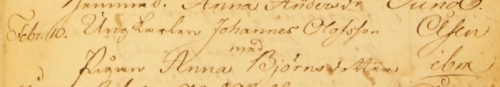 Anna Anders Dr
Febr. 10. Ungkarlen Johannes Olofsson
med
Pigan Anna Björnsdotter ibm